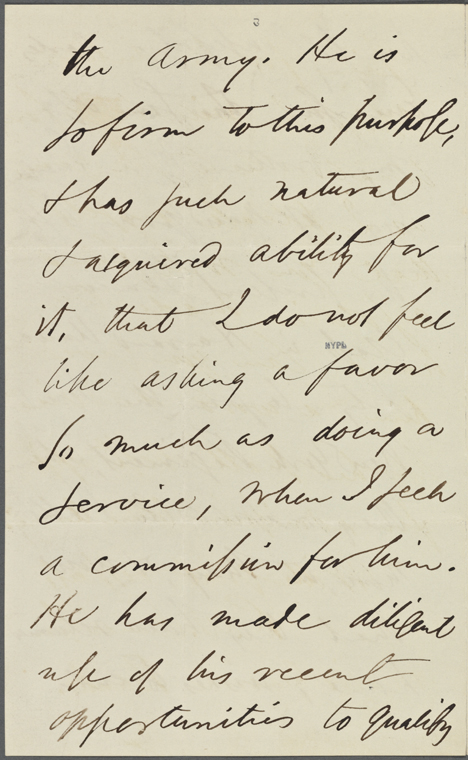 3
the Army. He is
so firm to this purpose,
& has such natural
& acquired ability for
it, that I do not feel
NYPL
like asking a favor
so much as doing a
service, when I seek
a commission for him.
He has made diligent
use of his recent
opportunities to qualify